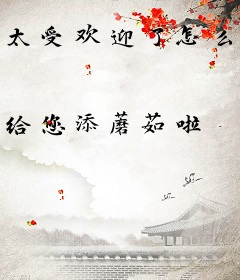 太受欢迎了怎么
给您添蘑茹啦